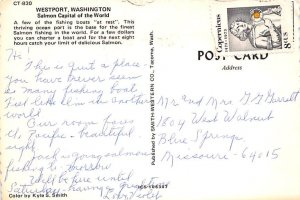 CT-830
WESTPORT, WASHINGTON
Salmon Capital of the World
A few of the fishing boats "at rest". This
thriving ocean port is the base for the finest
Salmon fishing in the world. For a few dollars
you can charter a boat and for the next eight
hours catch your limit of delicious Salmon.
Hi!
This is quite a place
you have never seen so
many fishing boats,
feel like I'm in another
world
Our room faces
the Pacific - beautiful
sight
Jack is going salmon
fishing to-morrow
Will be here until
Saturday - having a great
Color by Kyle S. Smith
Published by SMITH-WESTERN CO., Tacoma, Wash.
Copernicus
8¢ US
POST CARD
Address
Mr and Mrs G T Garrett
1804 West Walnut
Blue Springs
Missouri - 64015